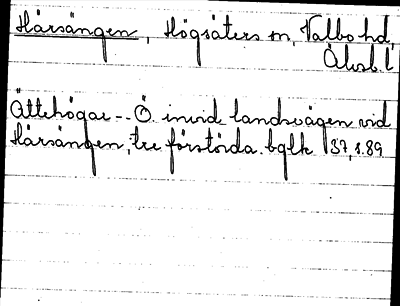 Hårsängen, Högsäters sn, Valbo hd,
Älvsb. l
Ättehögar -- Ö. invid landsvägen vid
Hårsängen, tre förstörda. bglk 137, s. 89